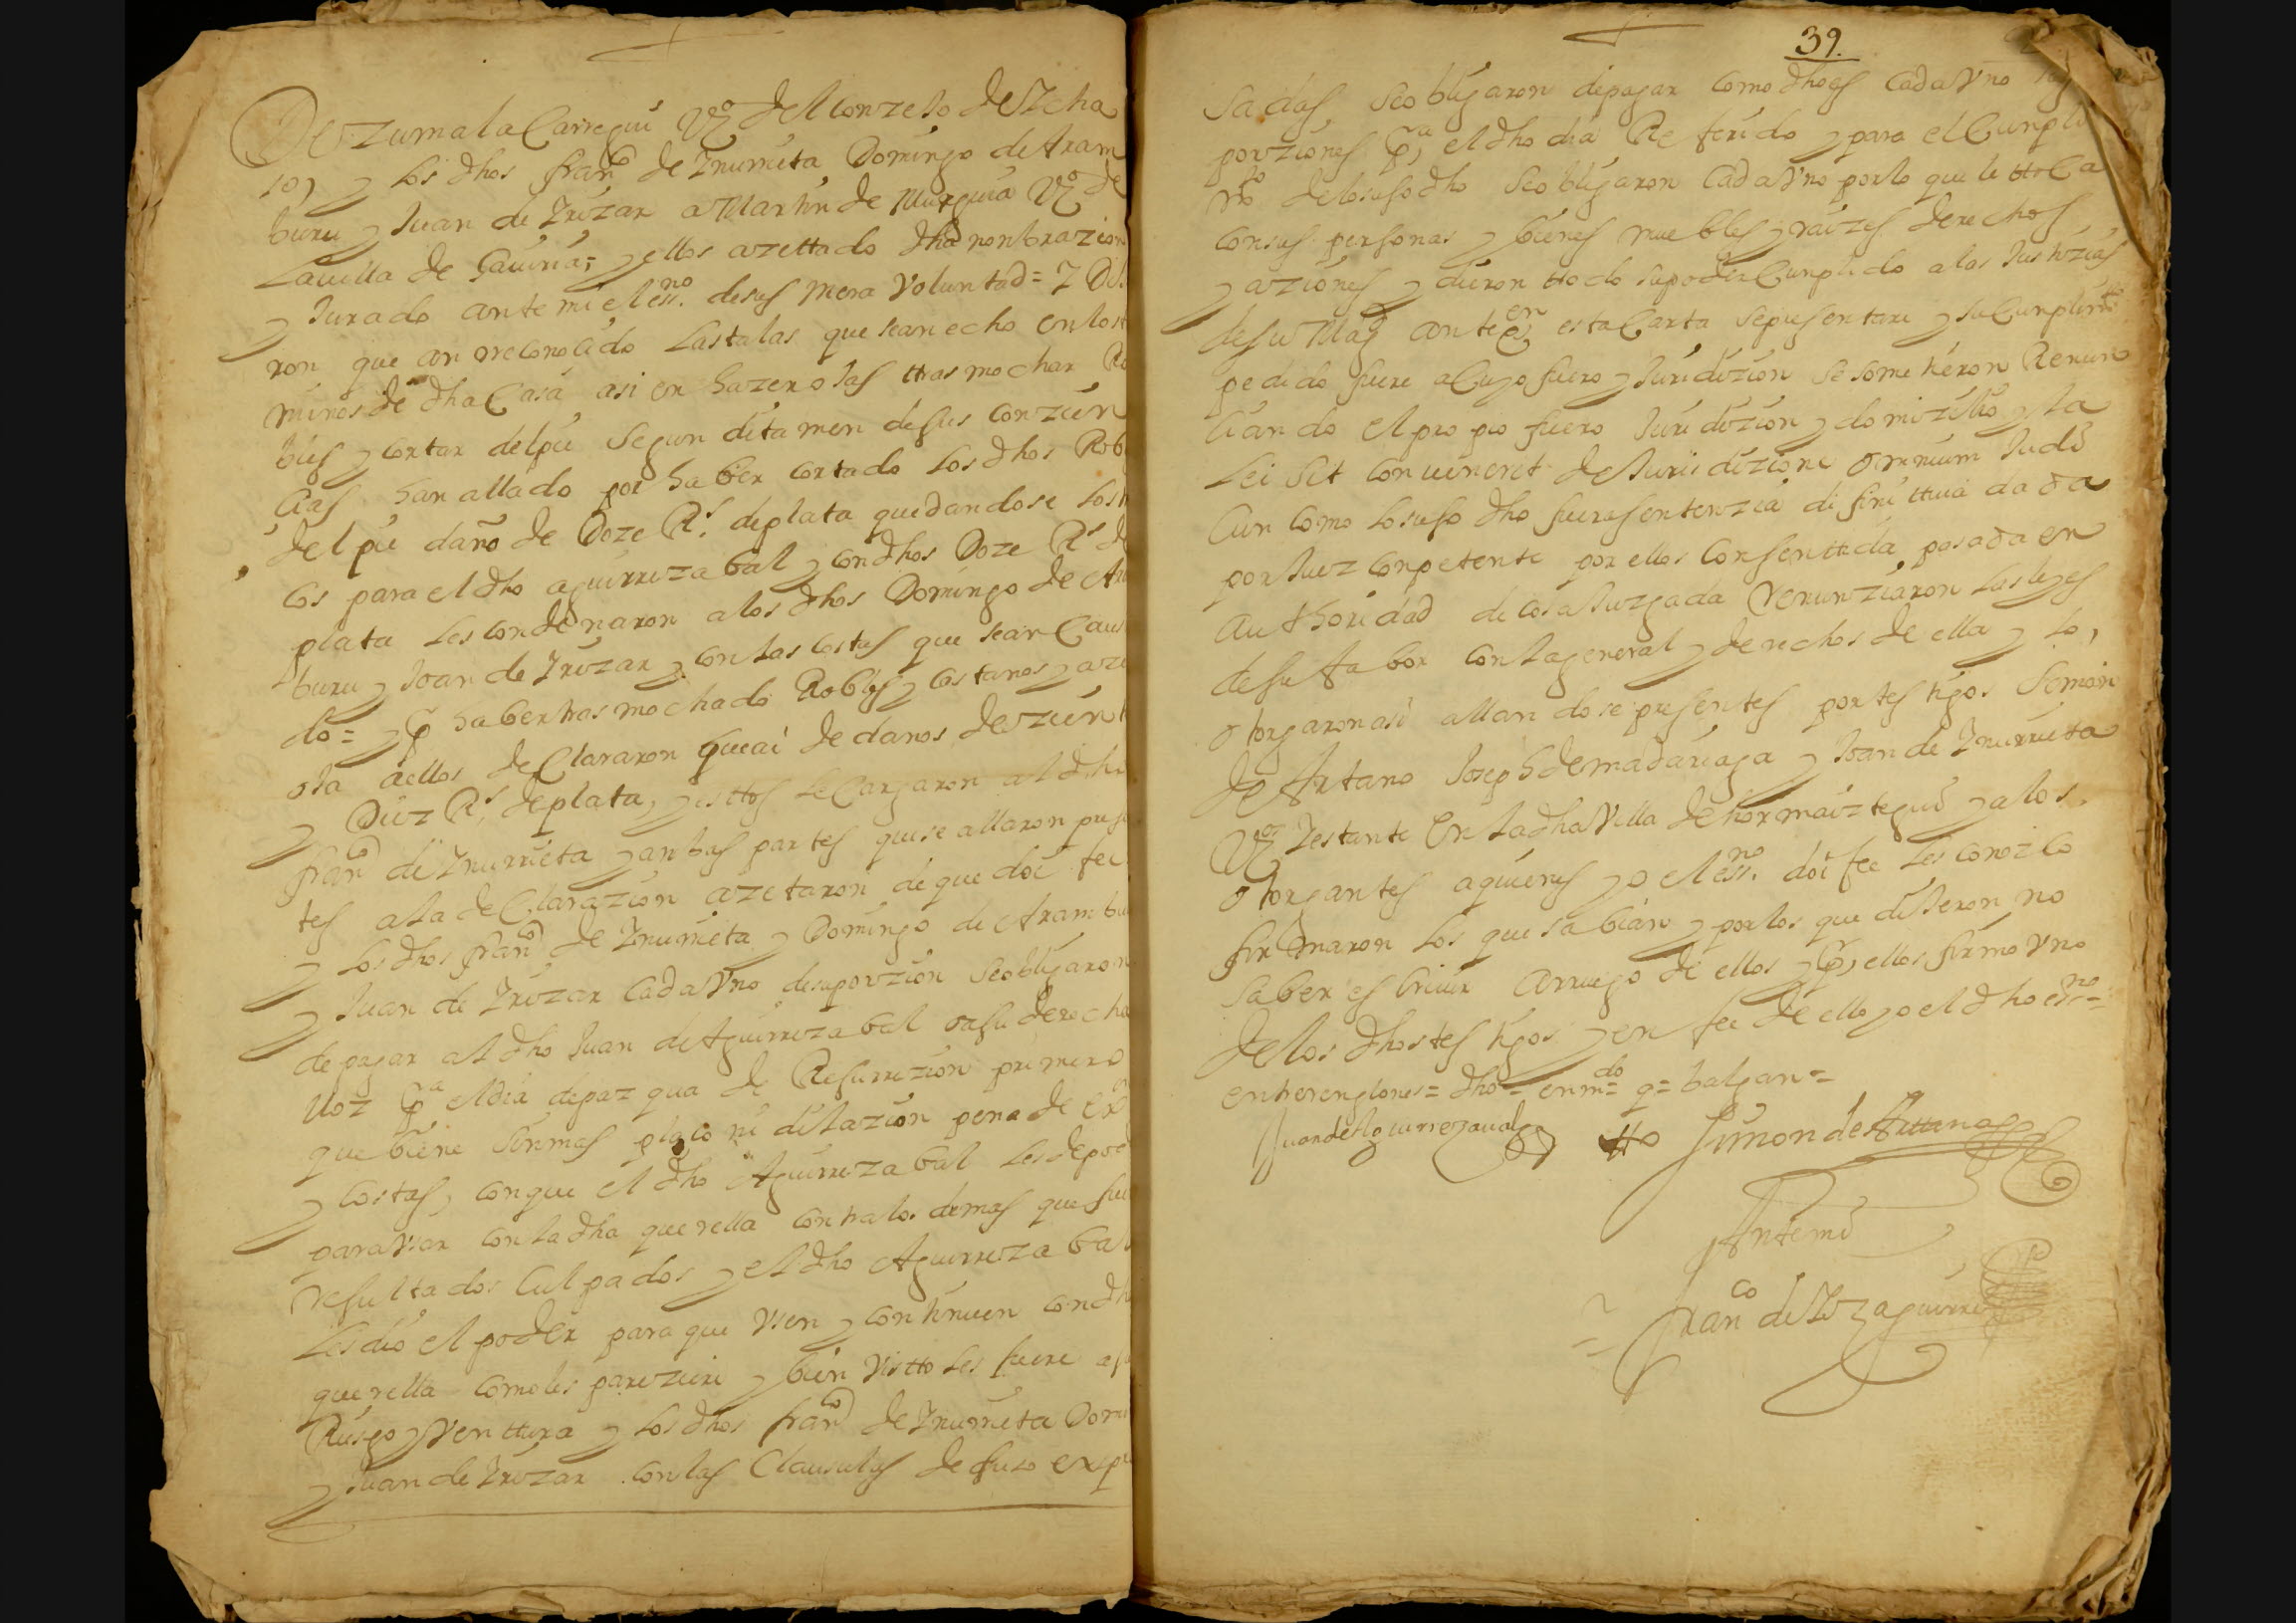 De Zumalacarregui Vº del Conzejo de Ycha
so, y los dhos franco de Ynurrieta Domingo de Aram
buru y Juan de Yrizar a Martin de Murguia Vº de
Lavilla de Gaviria; y ellos azettado dha nonbrazion
y Jurado ante mi el essno. de sus mera Voluntad = Y Di
ron que an rreconocido Lastalas que sean echo en los
minos de dha Casa asi en hazer ojas ttrasmochar Ro
bles y cortar del pie Segun ditamen de sus conzien
cias han allado por haber cortado Los dhos Rob
del pie daño de Doze Rs. de plata quedandose los
cos para el dho aguirrezabal y con dhos Doze Rs d
plata Les condenaron a los dhos Domingo de Ara
buru y Joan de Yrizar y con las costas que sean Caus
do = y Pr haber trasmochado Robles y castanos y aze
oja aellos de Clararon que ai de danos de zien
y Diez Rs, de plata, y esttos le Cargaron al dho
franco de Ynurrieta y anbas partes que se allaron pres
tes a la de Clarazion azetaron de que doi fee
y los dhos franco de Ynurrieta y Domingo de Arambu
y Juan de Yrizar Cada Vno de su porzion se obligaron
de pagar al dho Juan de Aguirrezabal o a su derecha
Uoz Pa el dia de pazqua de Resurrezion primero
que biene sin mas plaço ni dilazion pena de exon
y costas, con que el dho Aguirrezabal les de pod
para vsar con la dha querella contra los demas que fue
resultados Culpados y el dho Aguirrezabal
Les dio el poder para que vsen y continuen con dh
querella como les pareziere y bien visto les fuere a su
Riesgo y Venttura y los dhos franco de Ynurrieta Domi
y Juan de Yrizar con las Clausulas de suso expre
39.
sadas, se obligaron de pagar como dho es Cada Vno sus
porziones Pa, el dho dia Referido y para el Cunpli
mto de lo suso dho se obligaron Cada Vno por lo que le ttoCa
con sus personas y bienes muebles y raizes derechos
y aziones y dieron ttodo su poder Cunplido a las Justizias
de su Magd ante quien esta Carta se presentare y su Cunplimto
pedido fuere a Cuyo fuero y Juridizion se sometieron Renun
ciando el propio fuero Juridizion y domizilio y la
Lei Sit convenerit de Jurisdizione omnium Judi
Cun como lo suso dho fuera sentenzia difinittiva dada
por Juez conpetente por ellos Consenttida pasada en
authoridad de cosa Juzgada renunziaron las leyes
de su fabor con la general y derechos de ella y lo,
otorgaron asi allandose presentes por testigos Simon
de Artano Joseph de madariaga y Joan de Ynurrieta
Vº Yestante En la dha Villa de hormaiztegui y a los
otorgantes a quienes yo el essno. doi fee les conozco
firmaron los que sabian y por los que dijeron no
saber escrivir a rruego de ellos y Pr, ellos firmo vno
de los dhos testigos y en fee de ello yo el dho essno =
entre renglones = dho = enmdo = q = balgan =
Juan de Aguirrezaval tto Simon de Arttano
Ante mi
Franco de Yzaguirre